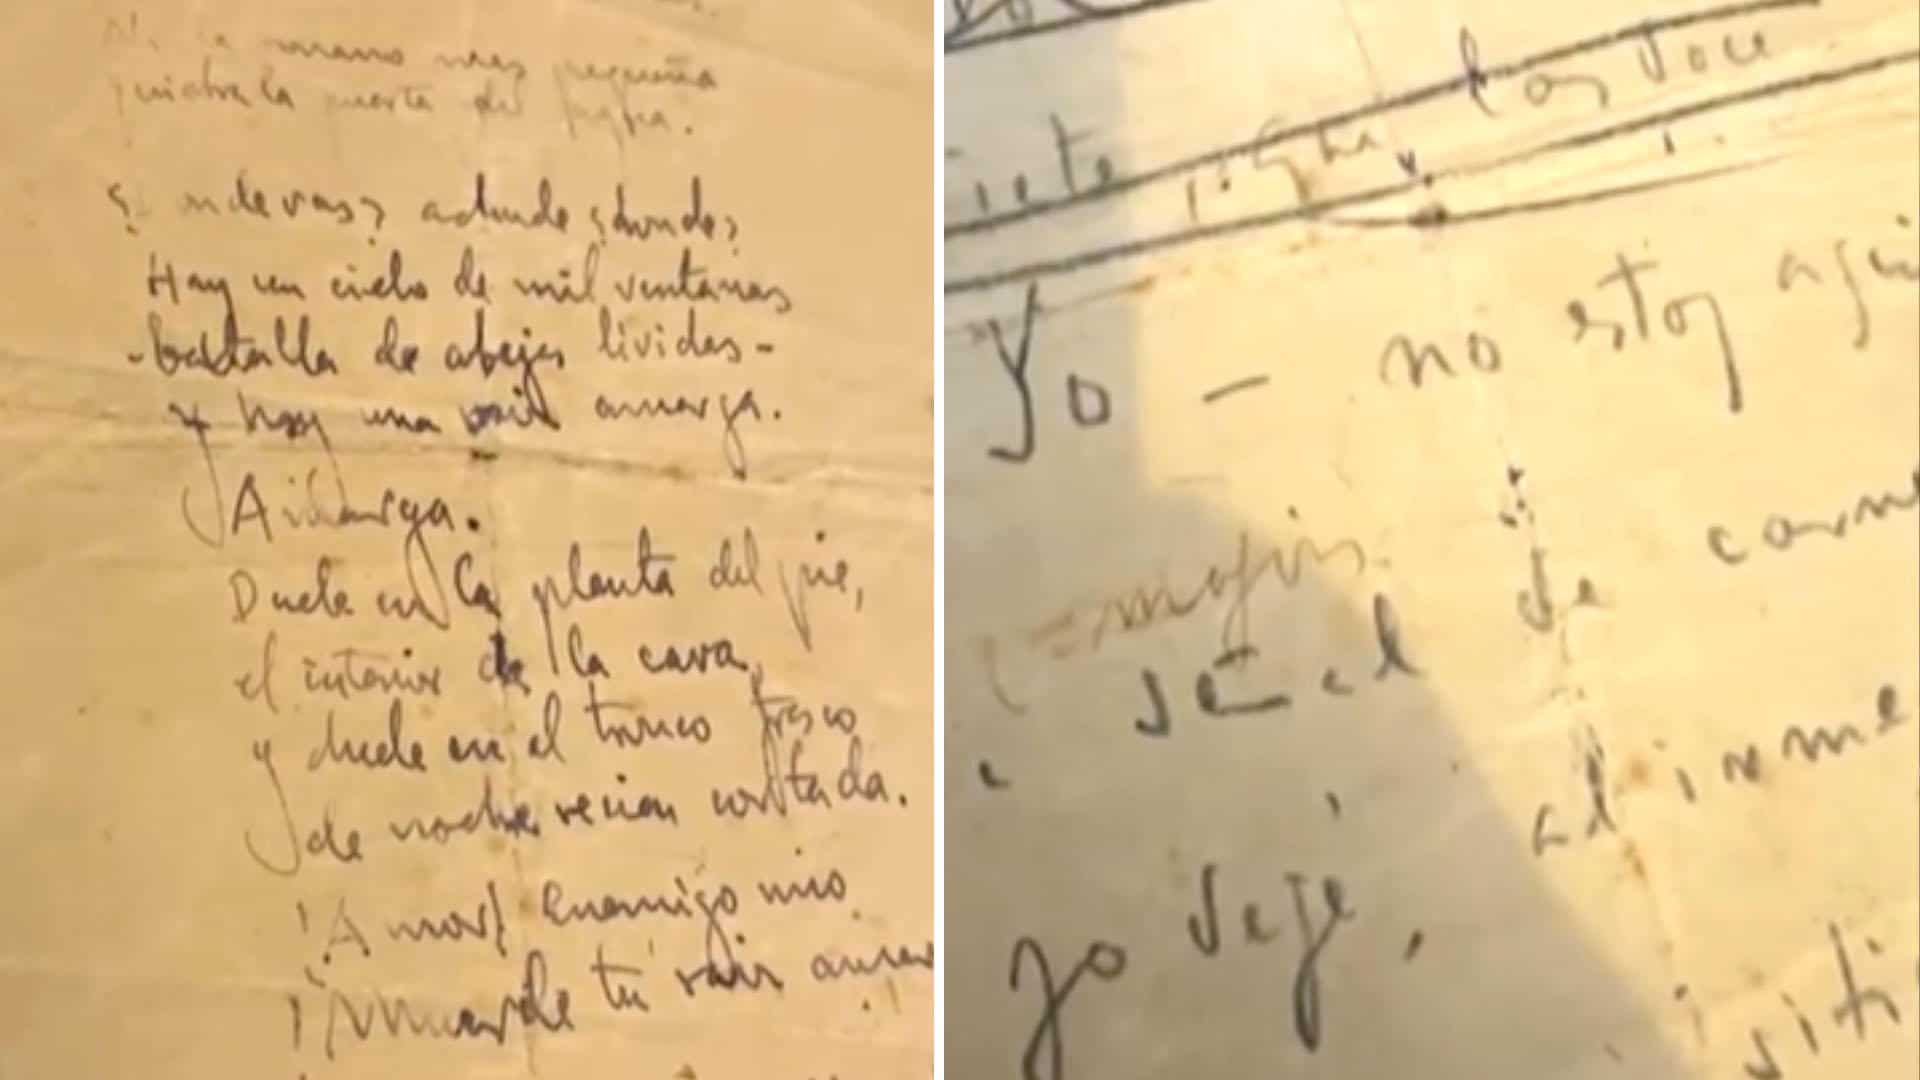 Ni la mano más pequeña
quiebra la puerta del agua.
¿Dónde vas? adonde ¿donde?
Hay un cielo de mil ventanas
-batalla de abejas lívidas-
y hay una raíz amarga.
Amarga.
Duele en la planta del pie,
el interior de la cara,
y duele en el tronco fresco
de noche recien cortada.
¡Amor! Enemigo mio
¡Muerde tu raiz amar
las doce
siete
Yo - no estoy aquí
señal de carne
al inme
yo dejé,
siti